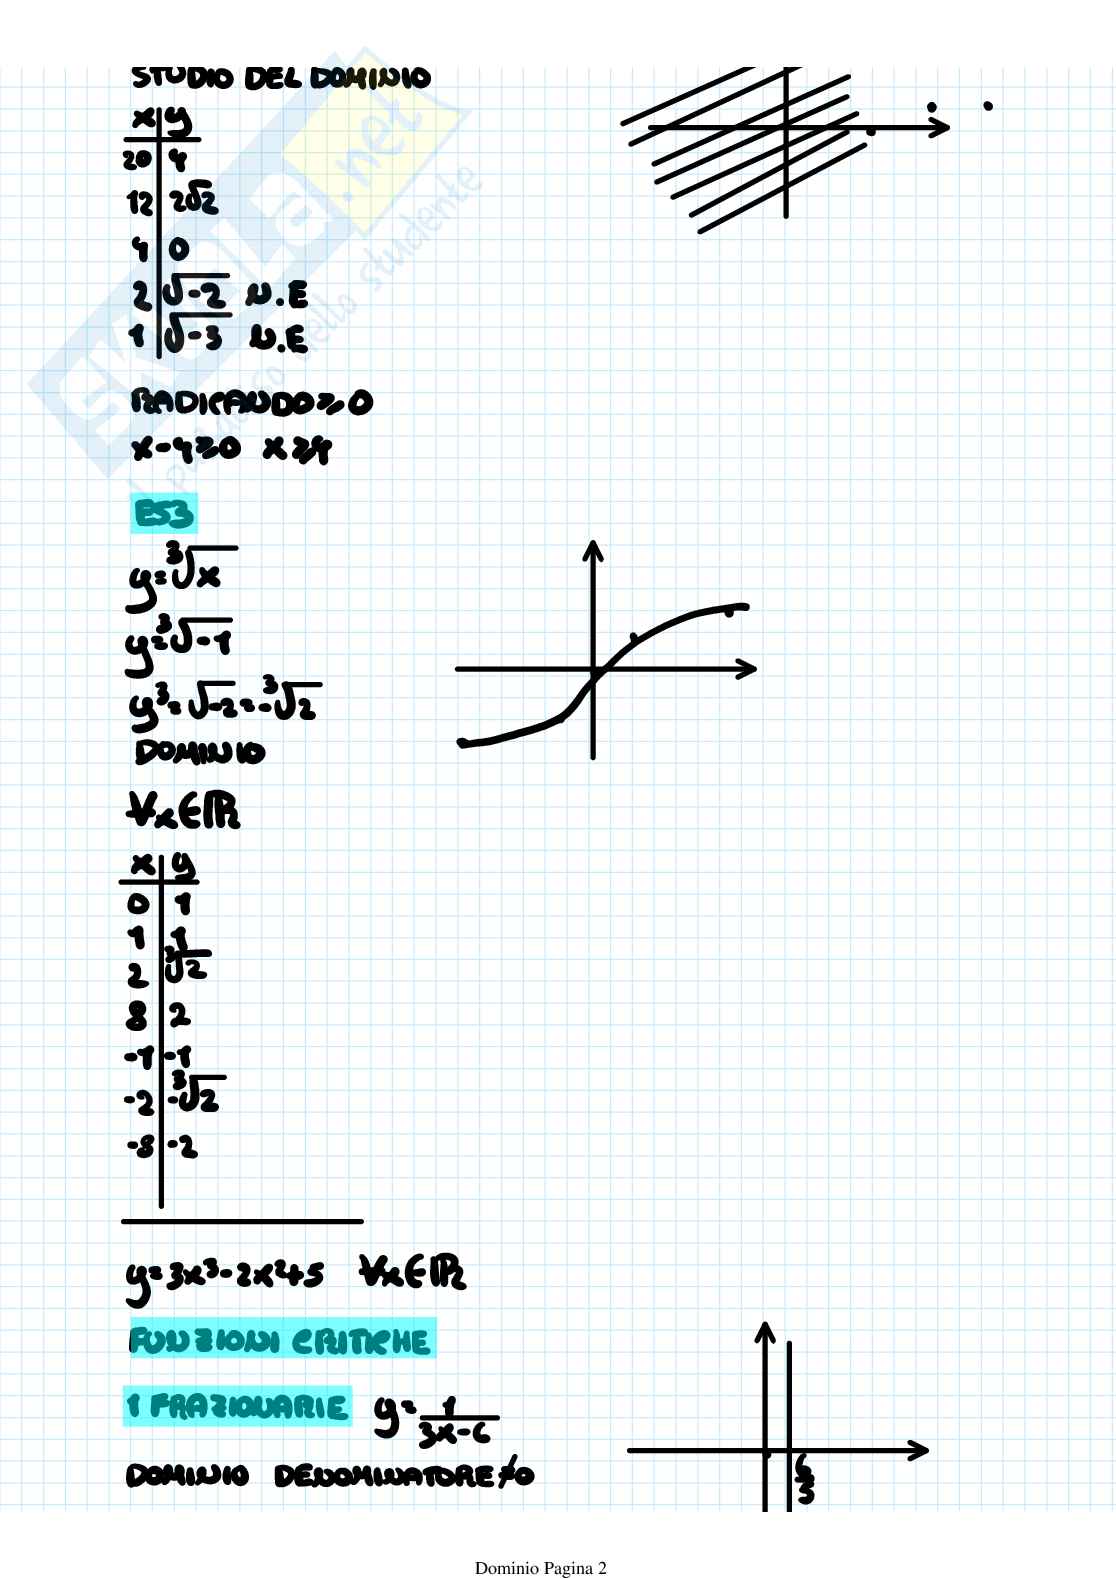 STUDIO DEL DOMINIO
x | y
20 | 4
12 | 2√2
4 | 0
2 | √-2 N.E
1 | √-3 N.E
RADICANDO ≥ 0
x-4≥0 x≥4
ES3
y=³√x
y=³√-1
y³=√-2=-³√2
DOMINIO
∀x∈ℝ
x | y
0 | 1
1 | 1
2 | ³√2
8 | 2
-1 | -1
-2 | -³√2
-8 | -2
y=3x³-2x²+5 ∀x∈ℝ
FUNZIONI CRITICHE
1 FRAZIONARIE y=1/(3x-6)
DOMINIO DENOMINATORE≠0
6/3
SKUOLA.net
nello studente
Dominio Pagina 2